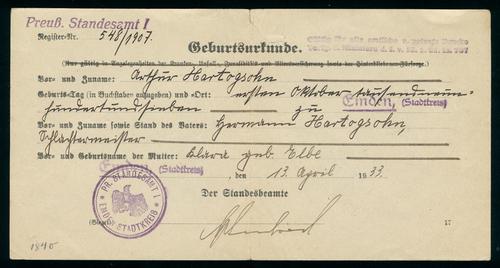 Preuß. Standesamt I
Register-Nr. 548/1907.
Gültig für alle amtliche u. private Zwecke
Geburtsurkunde.
(Nur gültig in Angelegenheiten der Kranken-, Unfall-, Invaliditäts- und Altersversicherung sowie der Hinterbliebenen-Fürsorge.)
Vor- und Zuname: Arthur Hartogsohn
Geburts-Tag (in Buchstaben anzugeben) und -Ort: ersten Oktober tausendneun-
hundertundsieben zu Emden, (Stadtkreis)
Vor- und Zuname sowie Stand des Vaters: Hermann Hartogsohn,
Schlachtermeister
Vor- und Geburtsname der Mutter: Klara geb. Elbe
Emden (Stadtkreis), den 13. April 1933.
Der Standesbeamte
PR. STANDESAMT I
EMDEN STADTKREIS
17
1840